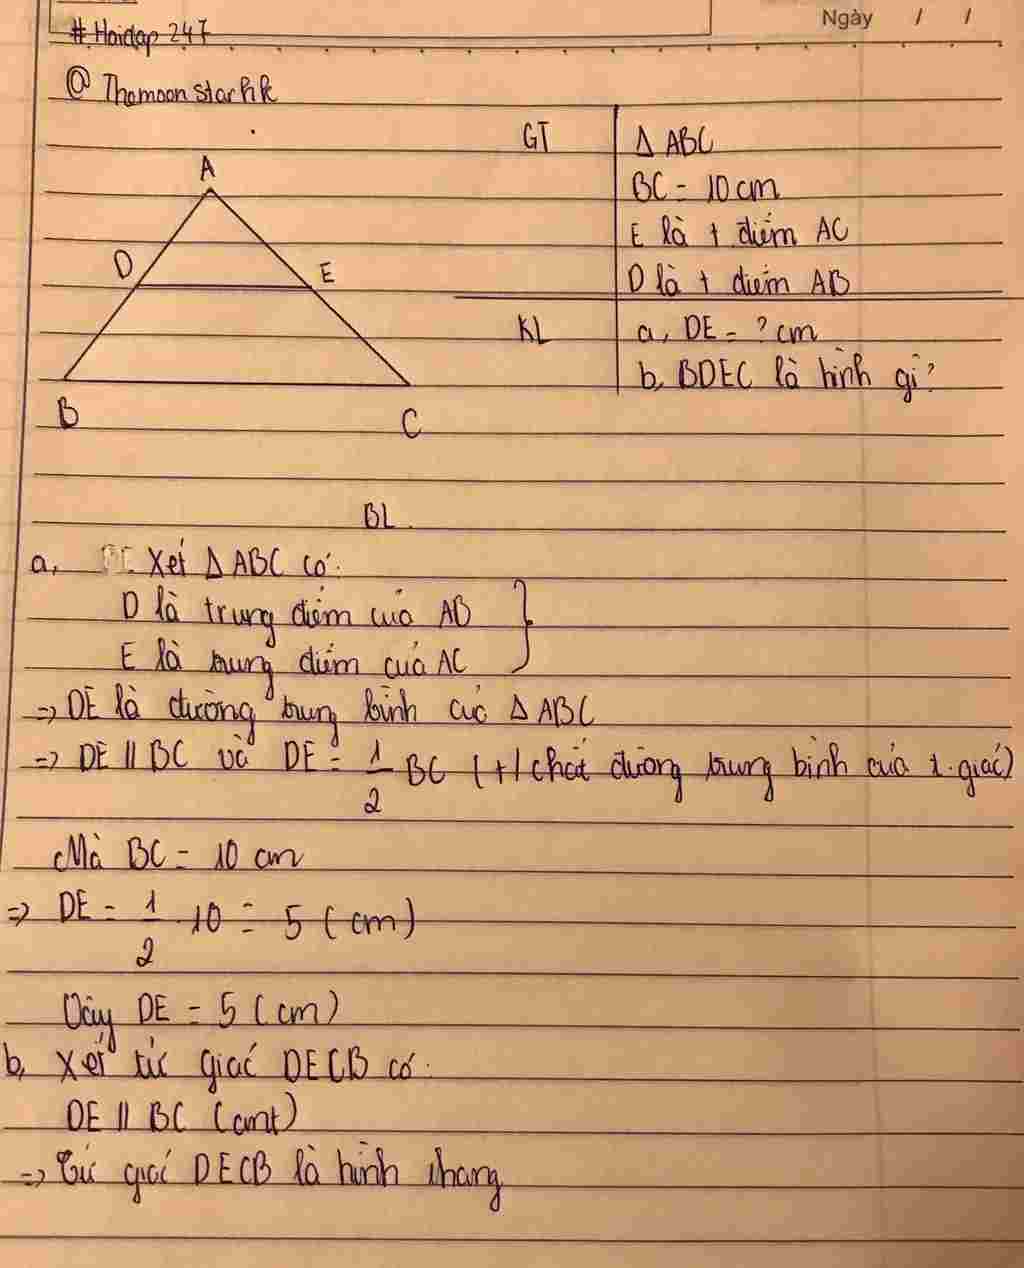 Ngày / /
# Hoidap 247
@ Themoonstarhk
GT
Δ ABC
BC = 10 cm
E là t điểm AC
D là t điểm AB
KL
a, DE = ? cm
b, BDEC là hình gì?
A
D
E
B
C
BL.
a, Xét Δ ABC có:
D là trung điểm của AB
E là trung điểm của AC
=> DE là đường trung bình của Δ ABC
=> DE // BC và DE = 1/2 BC (t/chất đường trung bình của t.giác)
Mà BC = 10 cm
=> DE = 1/2 . 10 = 5 (cm)
Vậy DE = 5 (cm)
b, Xét tứ giác DECB có:
DE // BC (cmt)
=> Tứ giác DECB là hình thang